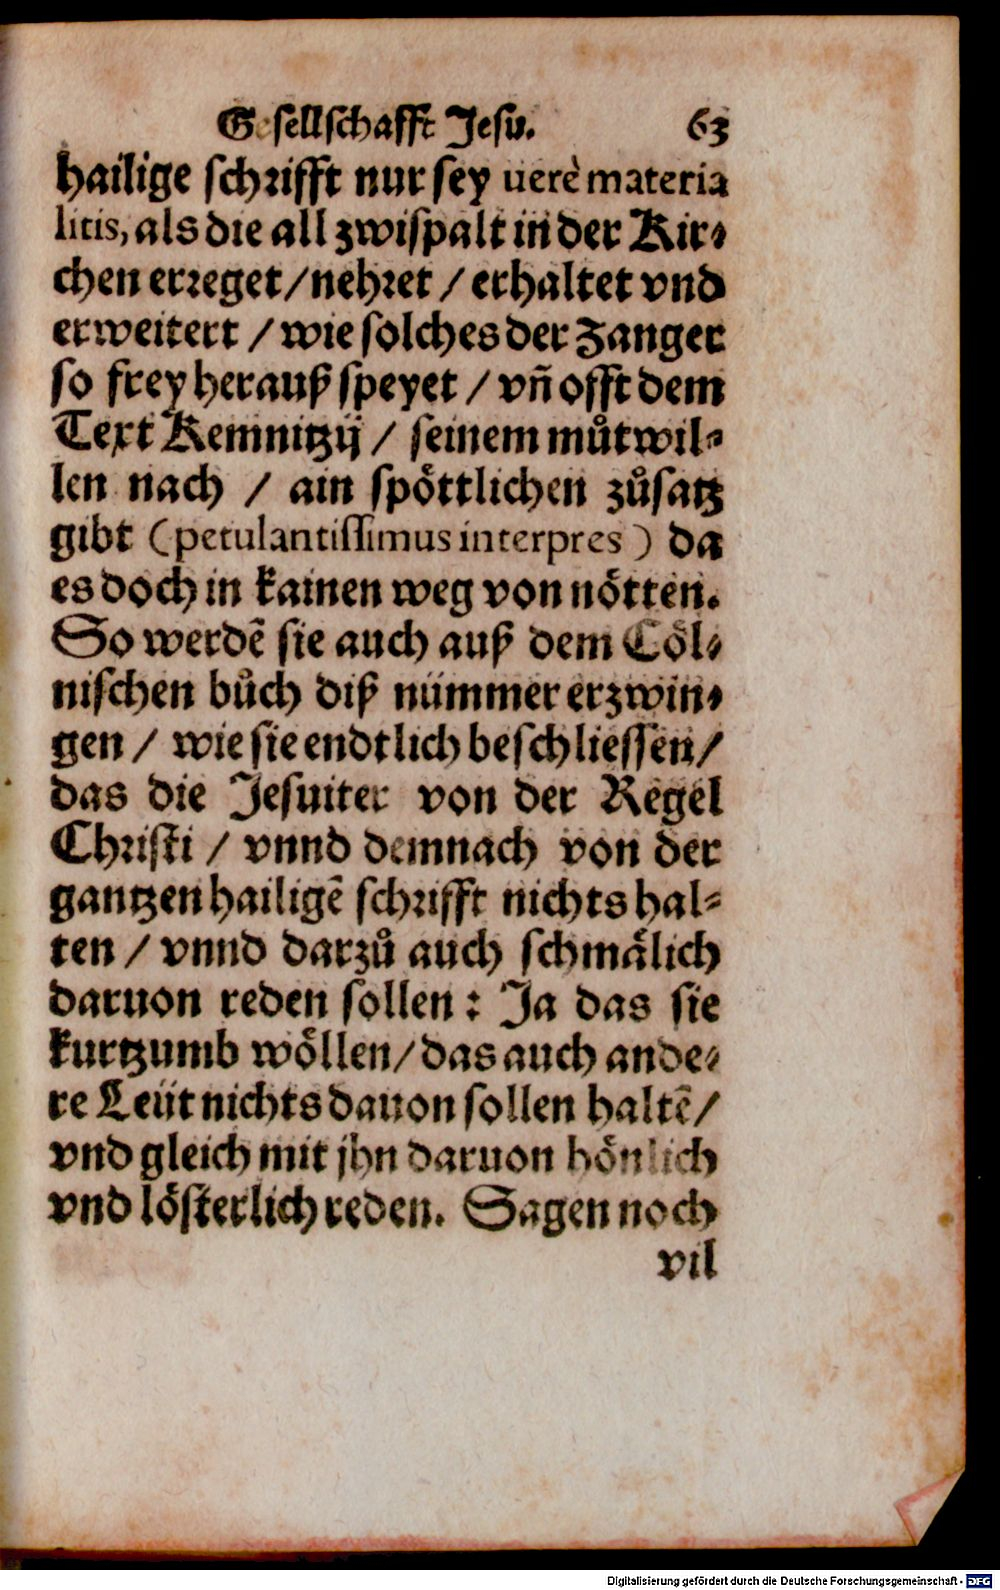 Gesellschafft Jesu. 63
hailige schrifft nur sey uerè materia
litis, als die all zwispalt in der Kir⸗
chen erreget / nehret / erhaltet vnd
erweitert / wie solches der Zanger
so frey herauß speyet / vñ offt dem
Text Kemnitzij / seinem můtwil⸗
len nach / ain spöttlichen zůsatz
gibt (petulantissimus interpres) da
es doch in kainen weg von nötten.
So werdē sie auch auß dem Cöl⸗
nischen bůch diß nümmer erzwin⸗
gen / wie sie endtlich beschliessen /
das die Jesuiter von der Regel
Christi / vnnd demnach von der
gantzen hailigē schrifft nichts hal⸗
ten / vnnd darzů auch schmälich
daruon reden sollen : Ja das sie
kurtzumb wöllen / das auch ande⸗
re Leüt nichts dauon sollen haltē /
vnd gleich mit jhn daruon hönlich
vnd lösterlich reden. Sagen noch
vil
Digitalisierung gefördert durch die Deutsche Forschungsgemeinschaft - DFG